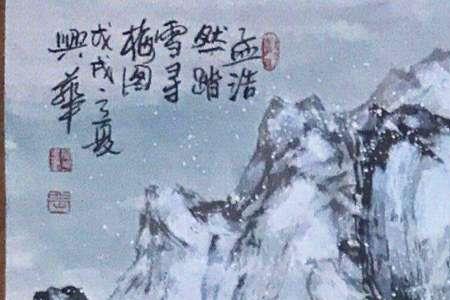 孟浩
然踏
雪寻
梅图
戊戌之夏
兴华